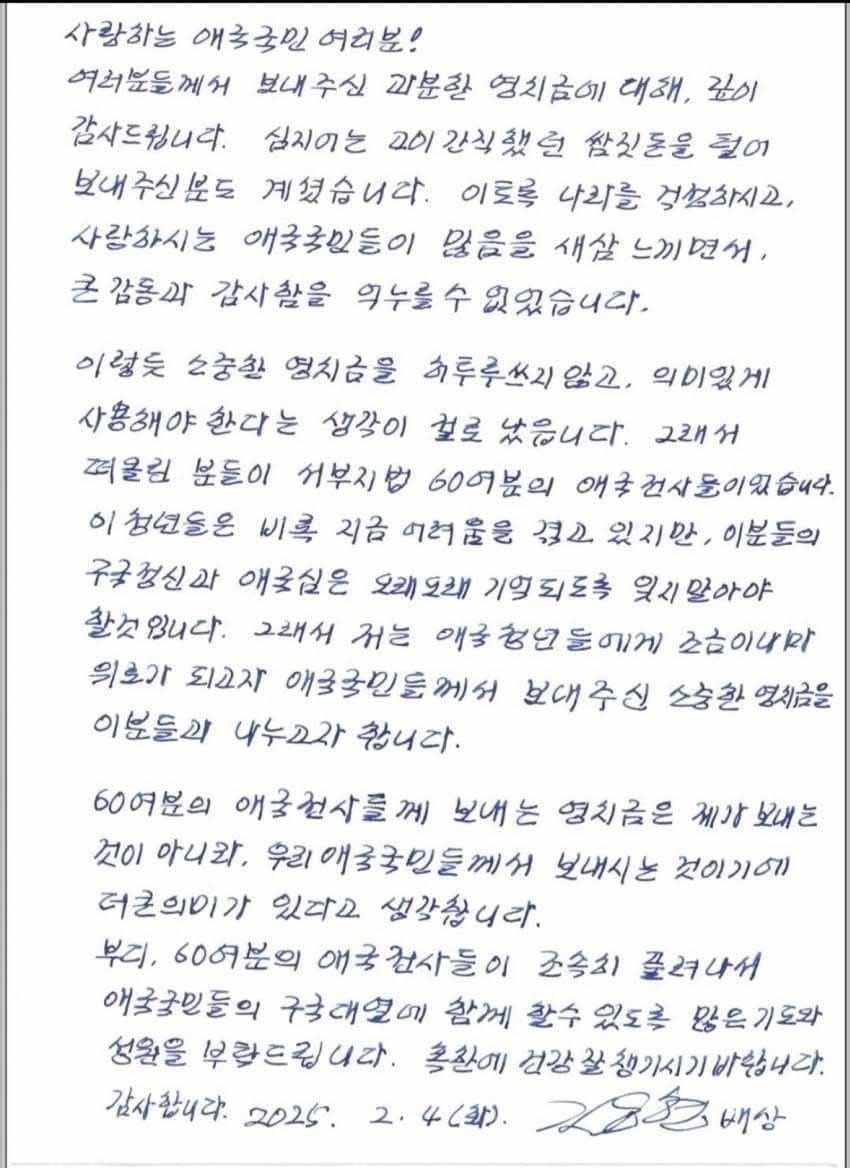 사랑하는 애국국민 여러분!
여러분들께서 보내주신 과분한 영치금에 대해, 깊이
감사드립니다. 심지어는 고이 간직했던 쌈짓돈을 털어
보내주신분도 계셨습니다. 이토록 나라를 걱정하시고,
사랑하시는 애국국민들이 많음을 새삼 느끼면서,
큰 감동과 감사함을 억누를수 없었습니다.
이렇듯 소중한 영치금을 허투루쓰지 않고, 의미있게
사용해야 한다는 생각이 절로 났읍니다. 그래서
떠올린 분들이 서부지법 60여분의 애국전사들이있습니다.
이 청년들은 비록 지금 어려움을 겪고 있지만, 이분들의
구국정신과 애국심은 오래오래 기억되도록 잊지말아야
할것입니다. 그래서 저는 애국청년들에게 조금이나마
위로가 되고자 애국국민들께서 보내주신 소중한 영치금을
이분들과 나누고자 합니다.
60여분의 애국전사들께 보내는 영치금은 제가 보내는
것이 아니라, 우리애국국민들께서 보내시는 것이기에
더큰의미가 있다고 생각합니다.
부디, 60여분의 애국전사들이 조속히 풀려나서
애국국민들의 구국대열에 함께 할수 있도록 많은기도와
성원을 부탁드립니다. 혹한에 건강 잘챙기시기바랍니다.
감사합니다. 2025. 2. 4(화). 김용현 배상